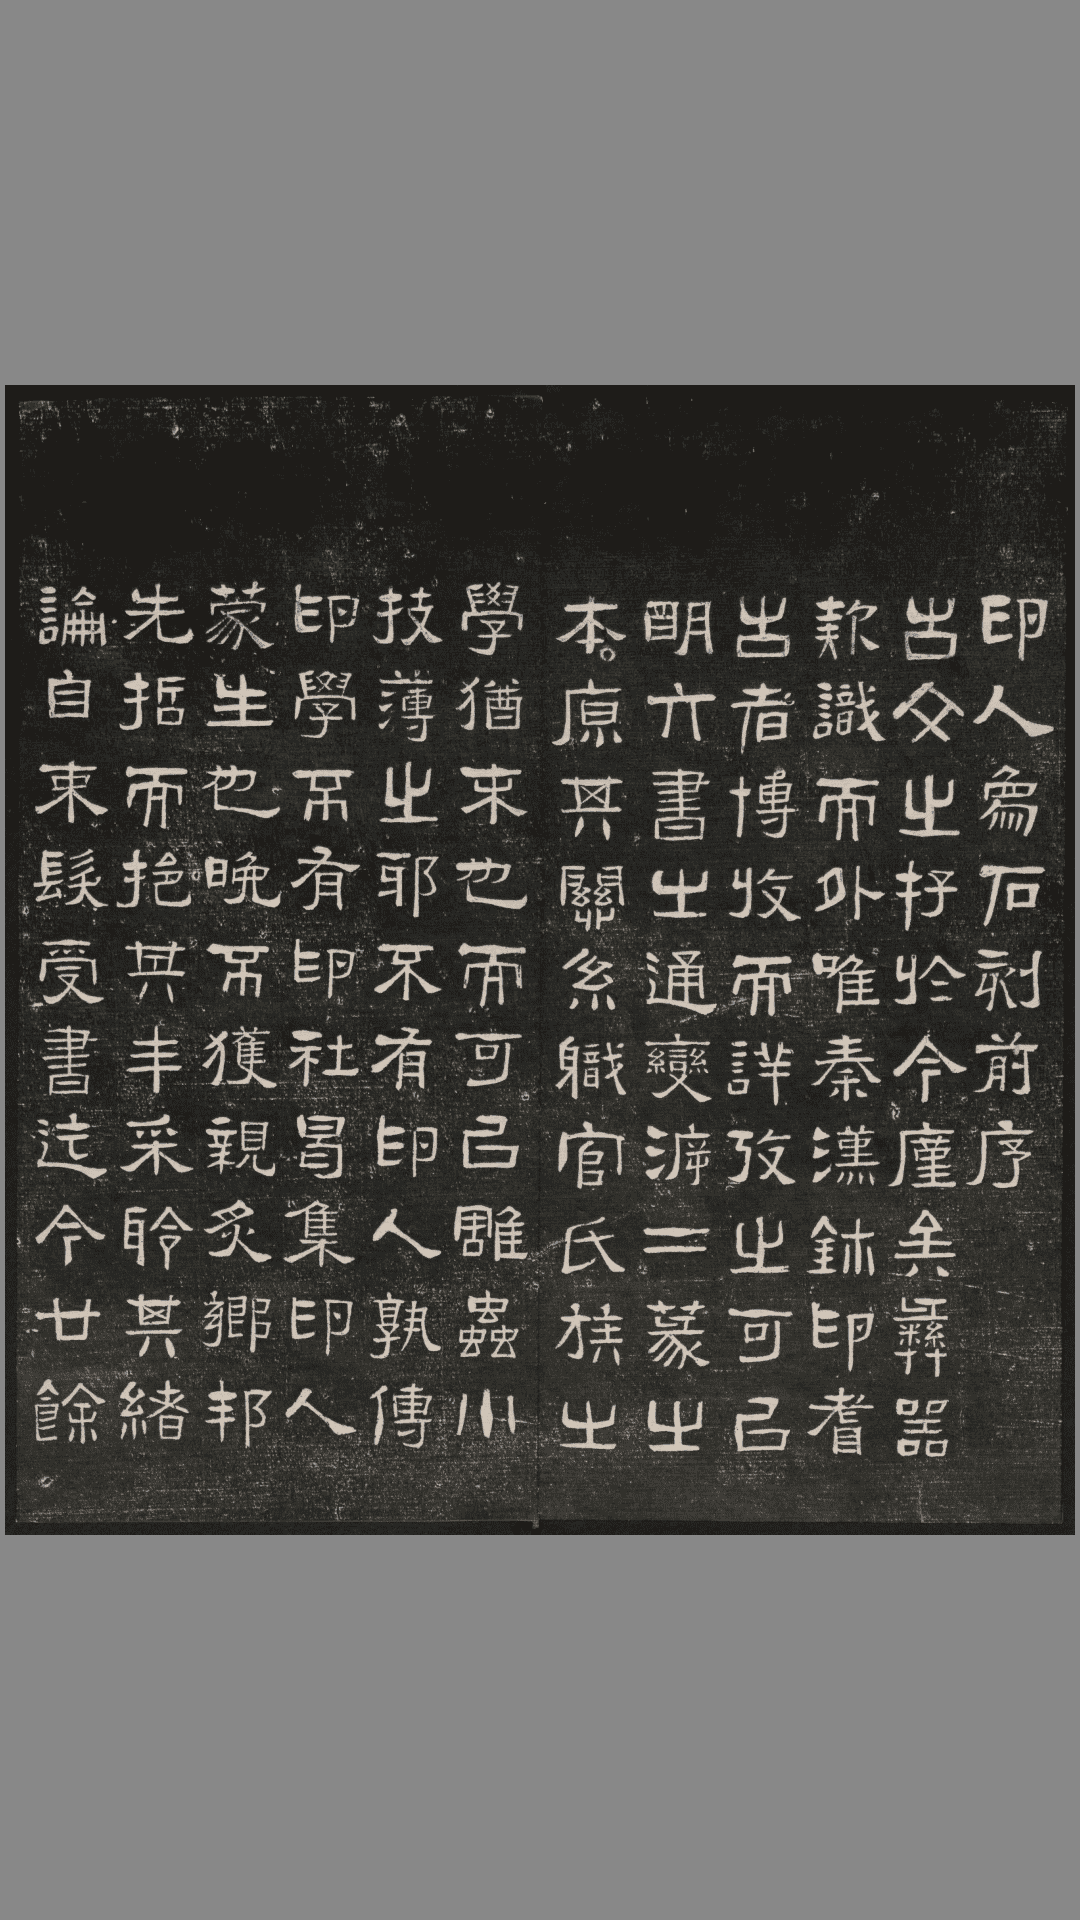 印人象石刻前序
古文之存於今廑矣彝器
款識而外唯秦漢鉥印耆
古者博收而詳攷之可㠯
明六書之通變溯二篆之
本原其關系職官氏族之
學猶末也而可㠯雕蟲小
技薄之耶不有印人孰傳
印學不有印社曷集印人
蒙生也晚不獲親炙鄉邦
先哲而挹其丰采聆其緒
論自束髮受書迄今廿餘